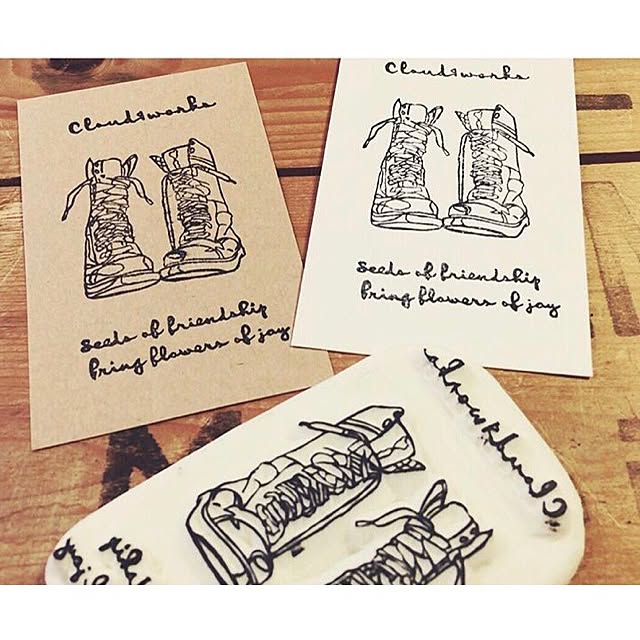 Cloud9works
Seeds of friendship
bring flowers of joy
Cloud9works
Seeds of friendship
bring flowers of joy
Cloud9works